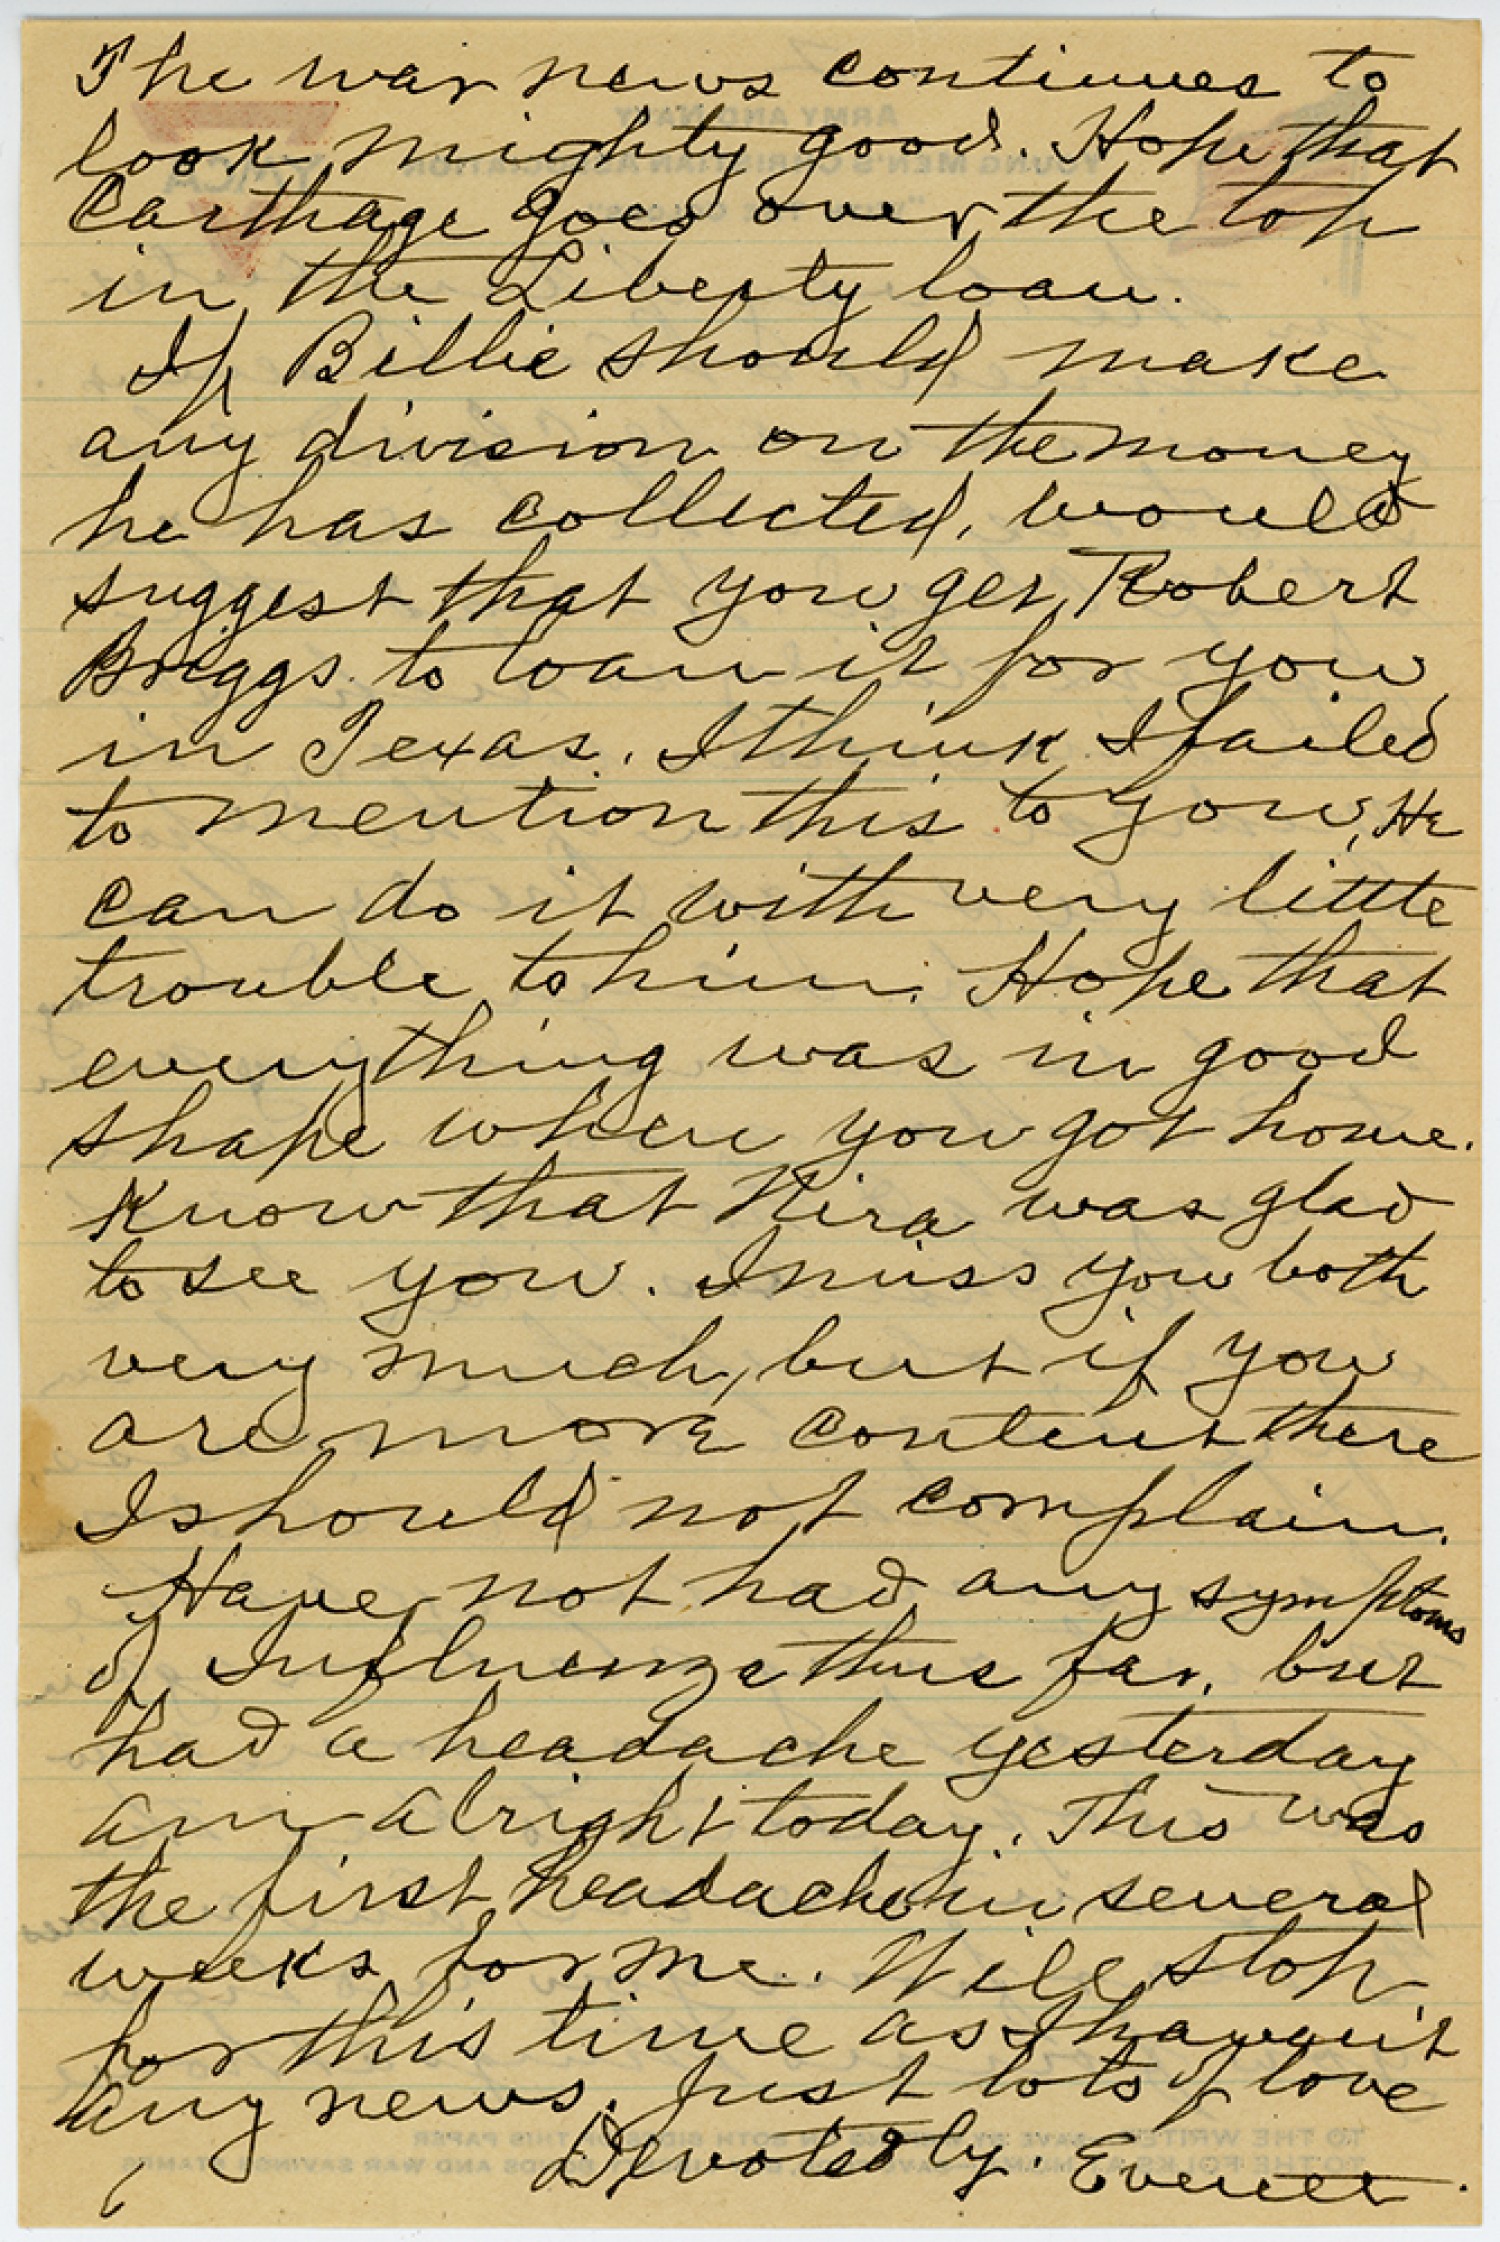 The war news continues to
look mighty good. Hope that
Carthage goes over the top
in the Liberty loan.
If Billie should make
any division on the money
he has collected, would
suggest that you get Robert
Briggs to loan it for you
in Texas. I think I failed
to mention this to you, He
can do it with very little
trouble to him. Hope that
everything was in good
shape when you got home.
Know that Nira was glad
to see you. I miss you both
very much, but if you
are more content there
I should not complain.
Have not had any symptoms
of Influenza thus far, but
had a headache yesterday
am alright today. This was
the first headache in several
weeks for me. Will stop
for this time as I haven't
any news. Just lots of love
Devotedly. Everett.